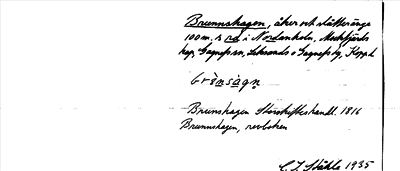 Brunnshagen, åker och slätteräng
100 m. s. rd. i Nordanholn, Mockfjärds
kap, Gagnefs sn, Leksands o Gagnefs tg, Kopp. l.
brènságn
Brunshagen Storskifteshandl. 1816
Brunnshagen, revboken
C. I. Ståhle 1935